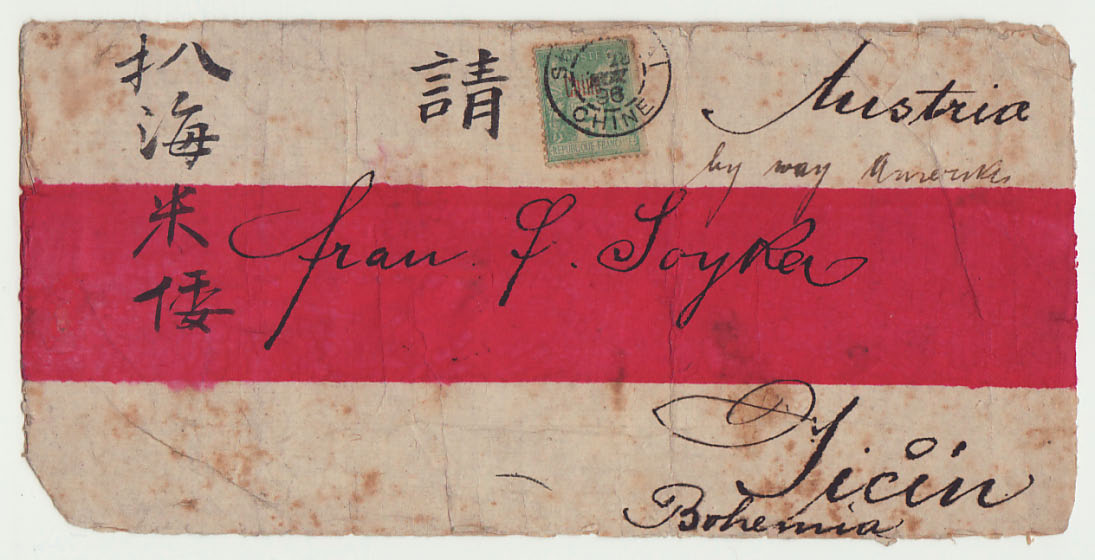 扒海米倭
請
Chine
96
CHINE
REPUBLIQUE FRANÇAISE
Austria
by way Amerika
frau F. Soyka
Jičín
Bohemia